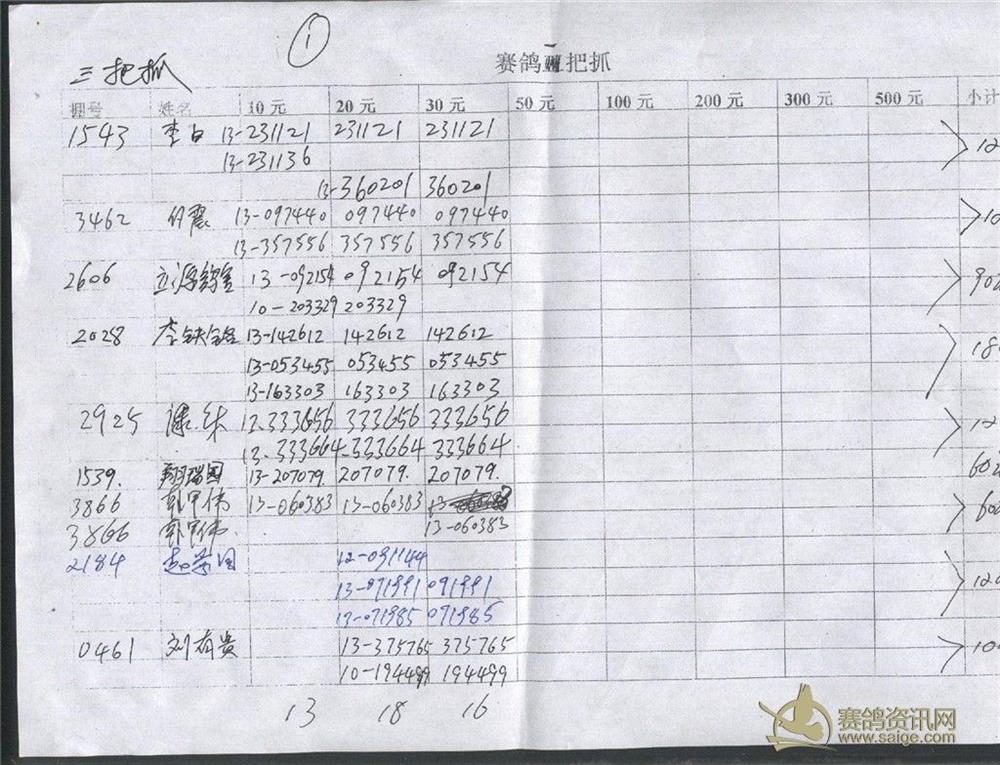 ①
三把抓
赛鸽把抓
棚号 姓名 10元 20元 30元 50元 100元 200元 300元 500元 小计
1543 李白 13-231121 231121 231121
13-231136
13-360201 360201
3462 13-097440 097440 097440
13-357556 357556 357556
2606 13-092154 092154 092154
10-203329 203329
2028 13-142612 142612 142612
13-053455 053455 053455
13-163303 163303 163303
2925 333656 333656
333664 333664
1539. 翔瑞园 13-207079. 207079. 207079.
3866 郭甲伟 13-060383 13-060383
3866 郭甲伟 13-060383
2184 12-091144
091991
071985
0461 刘有贵 13-375765 375765
10-194499 194499
13 18 16
赛鸽资讯网
www.saige.com